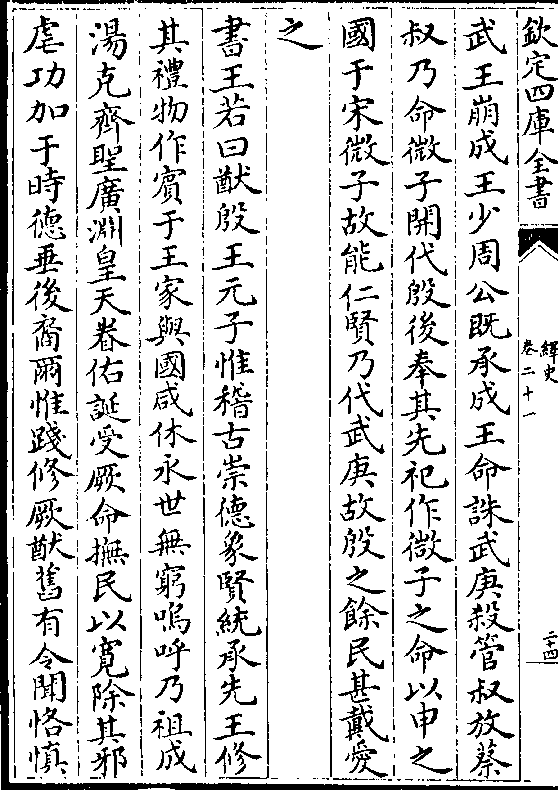 欽定四庫全書
繹史
卷二十一
二十四
武王崩成王少周公既承成王命誅武庚殺管叔放蔡
叔乃命微子開代殷後奉其先祀作微子之命以申之
國于宋微子故能仁賢乃代武庚故殷之餘民甚戴愛
之
書王若曰猷殷王元子惟稽古崇德象賢統承先王修
其禮物作賓于王家與國咸休永世無窮嗚呼乃祖成
湯克齊聖廣淵皇天眷佑誕受厥命撫民以寛除其邪
虐功加于時德垂後裔爾惟踐修厥猷舊有令聞恪慎